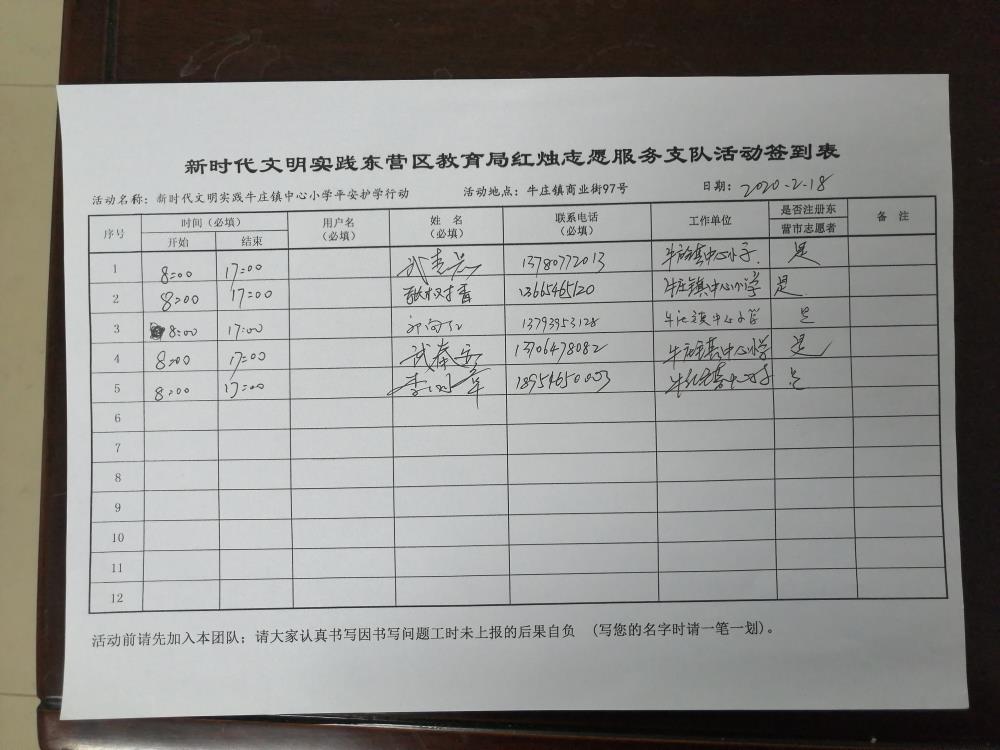 新时代文明实践东营区教育局红烛志愿服务支队活动签到表
活动名称：新时代文明实践牛庄镇中心小学平安护学行动 活动地点：牛庄镇商业街97号 日期：2020-2-18
序号 时间（必填） 用户名（必填） 姓 名（必填） 联系电话（必填） 工作单位 是否注册东营市志愿者 备 注
开始 结束
1 8:00 17:00 13780772013 牛庄镇中心小学 是
2 8:00 17:00 13665465120 牛庄镇中心小学 是
3 8:00 17:00 13793953128 牛庄镇中心小学 是
4 8:00 17:00 武春 13706478082 牛庄镇中心小学 是
5 8:00 17:00 李 18954650003 牛庄镇中心小学 是
6
7
8
9
10
11
12
活动前请先加入本团队；请大家认真书写因书写问题工时未上报的后果自负 （写您的名字时请一笔一划）。